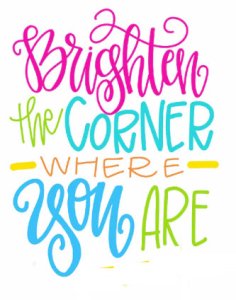 Brighten
the CORNER
WHERE
you ARE